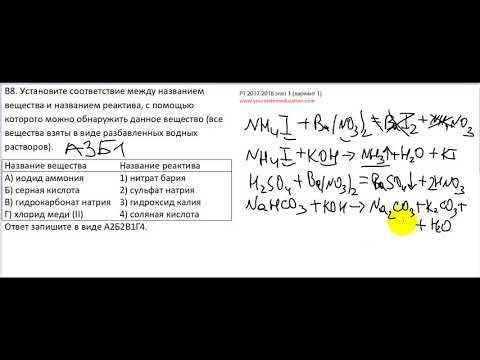 В8. Установите соответствие между названием
вещества и названием реактива, с помощью
которого можно обнаружить данное вещество (все
вещества взяты в виде разбавленных водных
растворов). А3Б1
Название вещества Название реактива
А) иодид аммония 1) нитрат бария
Б) серная кислота 2) сульфат натрия
В) гидрокарбонат натрия 3) гидроксид калия
Г) хлорид меди (II) 4) соляная кислота
Ответ запишите в виде А2Б2В1Г4.
РТ 2017-2018 этап 1 (вариант 1)
www.yoursystemeducation.com
NH4I + Ba(NO3)2 = BaI2 + NO3
NH4I + KOH → NH3↑ + H2O + KI
H2SO4 + Ba(NO3)2 = BaSO4↓ + 2HNO3
NaHCO3 + KOH → Na2CO3 + K2CO3 +
+ H2O